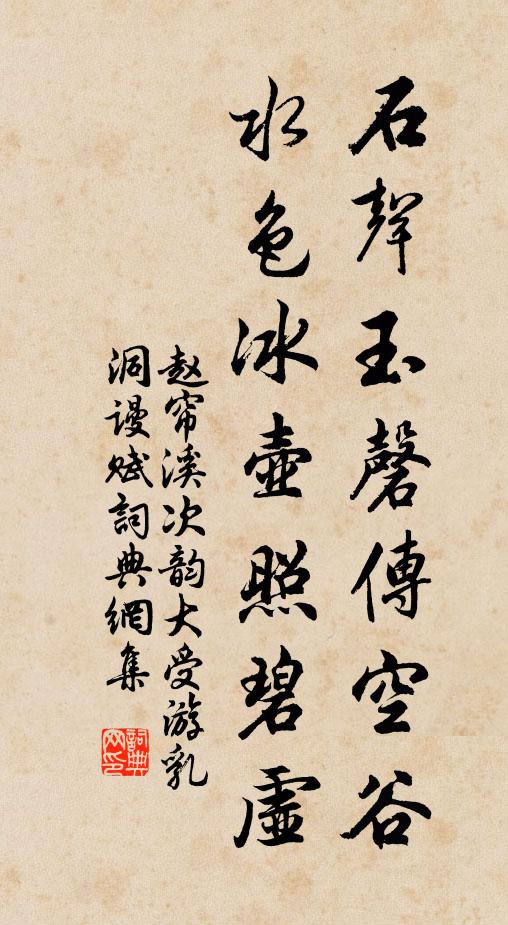 石聲玉磬傳空谷
水色冰壺照碧虛
赵帘溪次韵大受游乳
洞谩赋詞典網集
詞典
网印